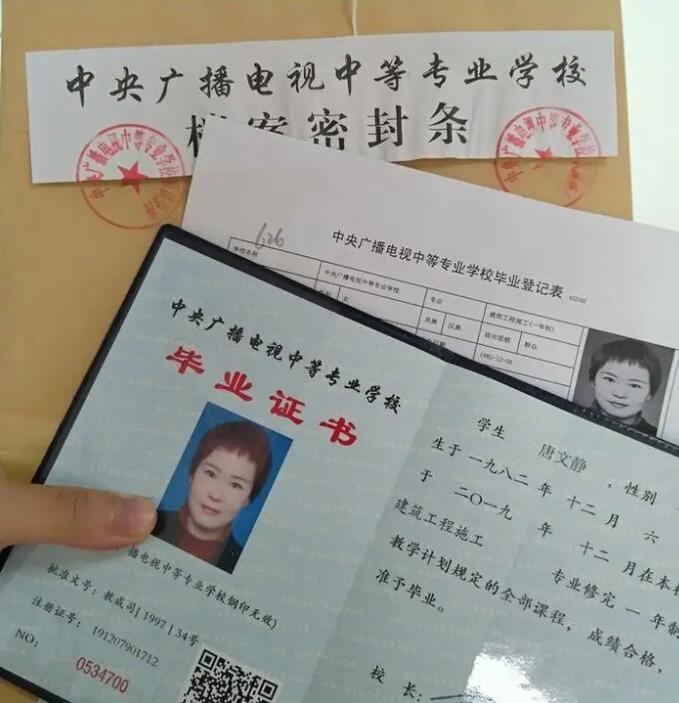 中央广播电视中等专业学校
档案密封条
中央广播电视中等专业学校
中央广播电视中等专业学校
626
中央广播电视中等专业学校毕业登记表
学校名称
中央广播电视中等专业学校
专业
建筑工程施工(一年制)
女
民族
汉族
政治面貌
群众
1982-12-06
中央广播电视中等专业学校
毕业证书
播电视中等专业学校钢印无效)
批准文号：教成司[1997]34号
注册证号：191207901712
NO：
0534700
学生 唐文静 ，性别
生于一九八二年 十二月 六
于 二〇一九 年 十二 月在本校
建筑工程施工 专业修完 一 年制
教学计划规定的全部课程，成绩合格，
准予毕业。
校 长：